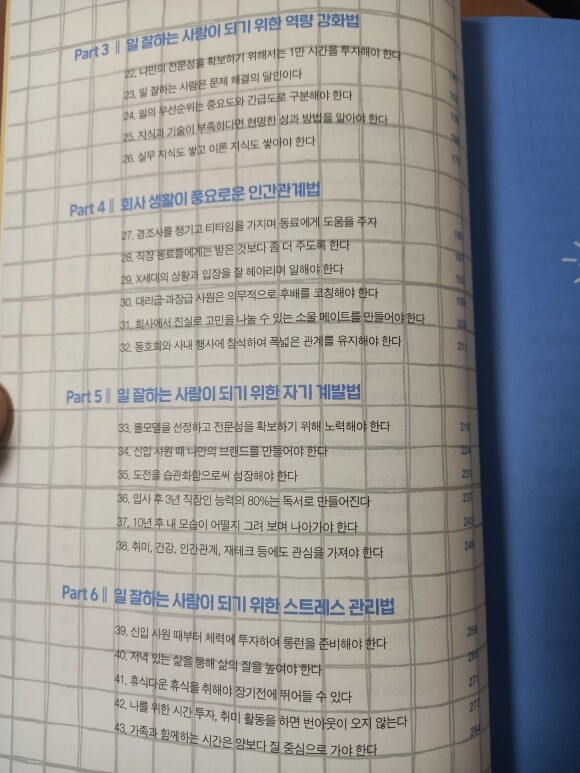 Part 3 || 일 잘하는 사람이 되기 위한 역량 강화법
22. 나만의 전문성을 확보하기 위해서는 1만 시간을 투자해야 한다
23. 일 잘하는 사람은 문제 해결의 달인이다
24. 일의 우선순위는 중요도와 긴급도로 구분해야 한다
25. 지식과 기술이 부족하다면 현명한 성과 방법을 알아야 한다
26. 실무 지식도 쌓고 이론 지식도 쌓아야 한다
Part 4 || 회사 생활이 풍요로운 인간관계법
27. 경조사를 챙기고 티타임을 가지며 동료에게 도움을 주자
28. 직장 동료들에게는 받은 것보다 좀 더 주도록 한다
29. X세대의 상황과 입장을 잘 헤아리며 일해야 한다
30. 대리급·과장급 사원은 의무적으로 후배를 코칭해야 한다
31. 회사에서 진실로 고민을 나눌 수 있는 소울 메이트를 만들어야 한다
32. 동호회와 사내 행사에 참석하여 폭넓은 관계를 유지해야 한다 211
Part 5 || 일 잘하는 사람이 되기 위한 자기 계발법
33. 롤모델을 선정하고 전문성을 확보하기 위해 노력해야 한다 218
34. 신입 사원 때 나만의 브랜드를 만들어야 한다 224
35. 도전을 습관화함으로써 성장해야 한다 231
36. 입사 후 3년 직장인 능력의 80%는 독서로 만들어진다 237
37. 10년 후 내 모습이 어떨지 그려 보며 나아가야 한다 243
38. 취미, 건강, 인간관계, 재테크 등에도 관심을 가져야 한다 249
Part 6 || 일 잘하는 사람이 되기 위한 스트레스 관리법
39. 신입 사원 때부터 체력에 투자하여 롱런을 준비해야 한다 258
40. 저녁 있는 삶을 통해 삶의 질을 높여야 한다 265
41. 휴식다운 휴식을 취해야 장기전에 뛰어들 수 있다 271
42. 나를 위한 시간 투자, 취미 활동을 하면 번아웃이 오지 않는다 277
43. 가족과 함께하는 시간은 양보다 질 중심으로 가야 한다 284